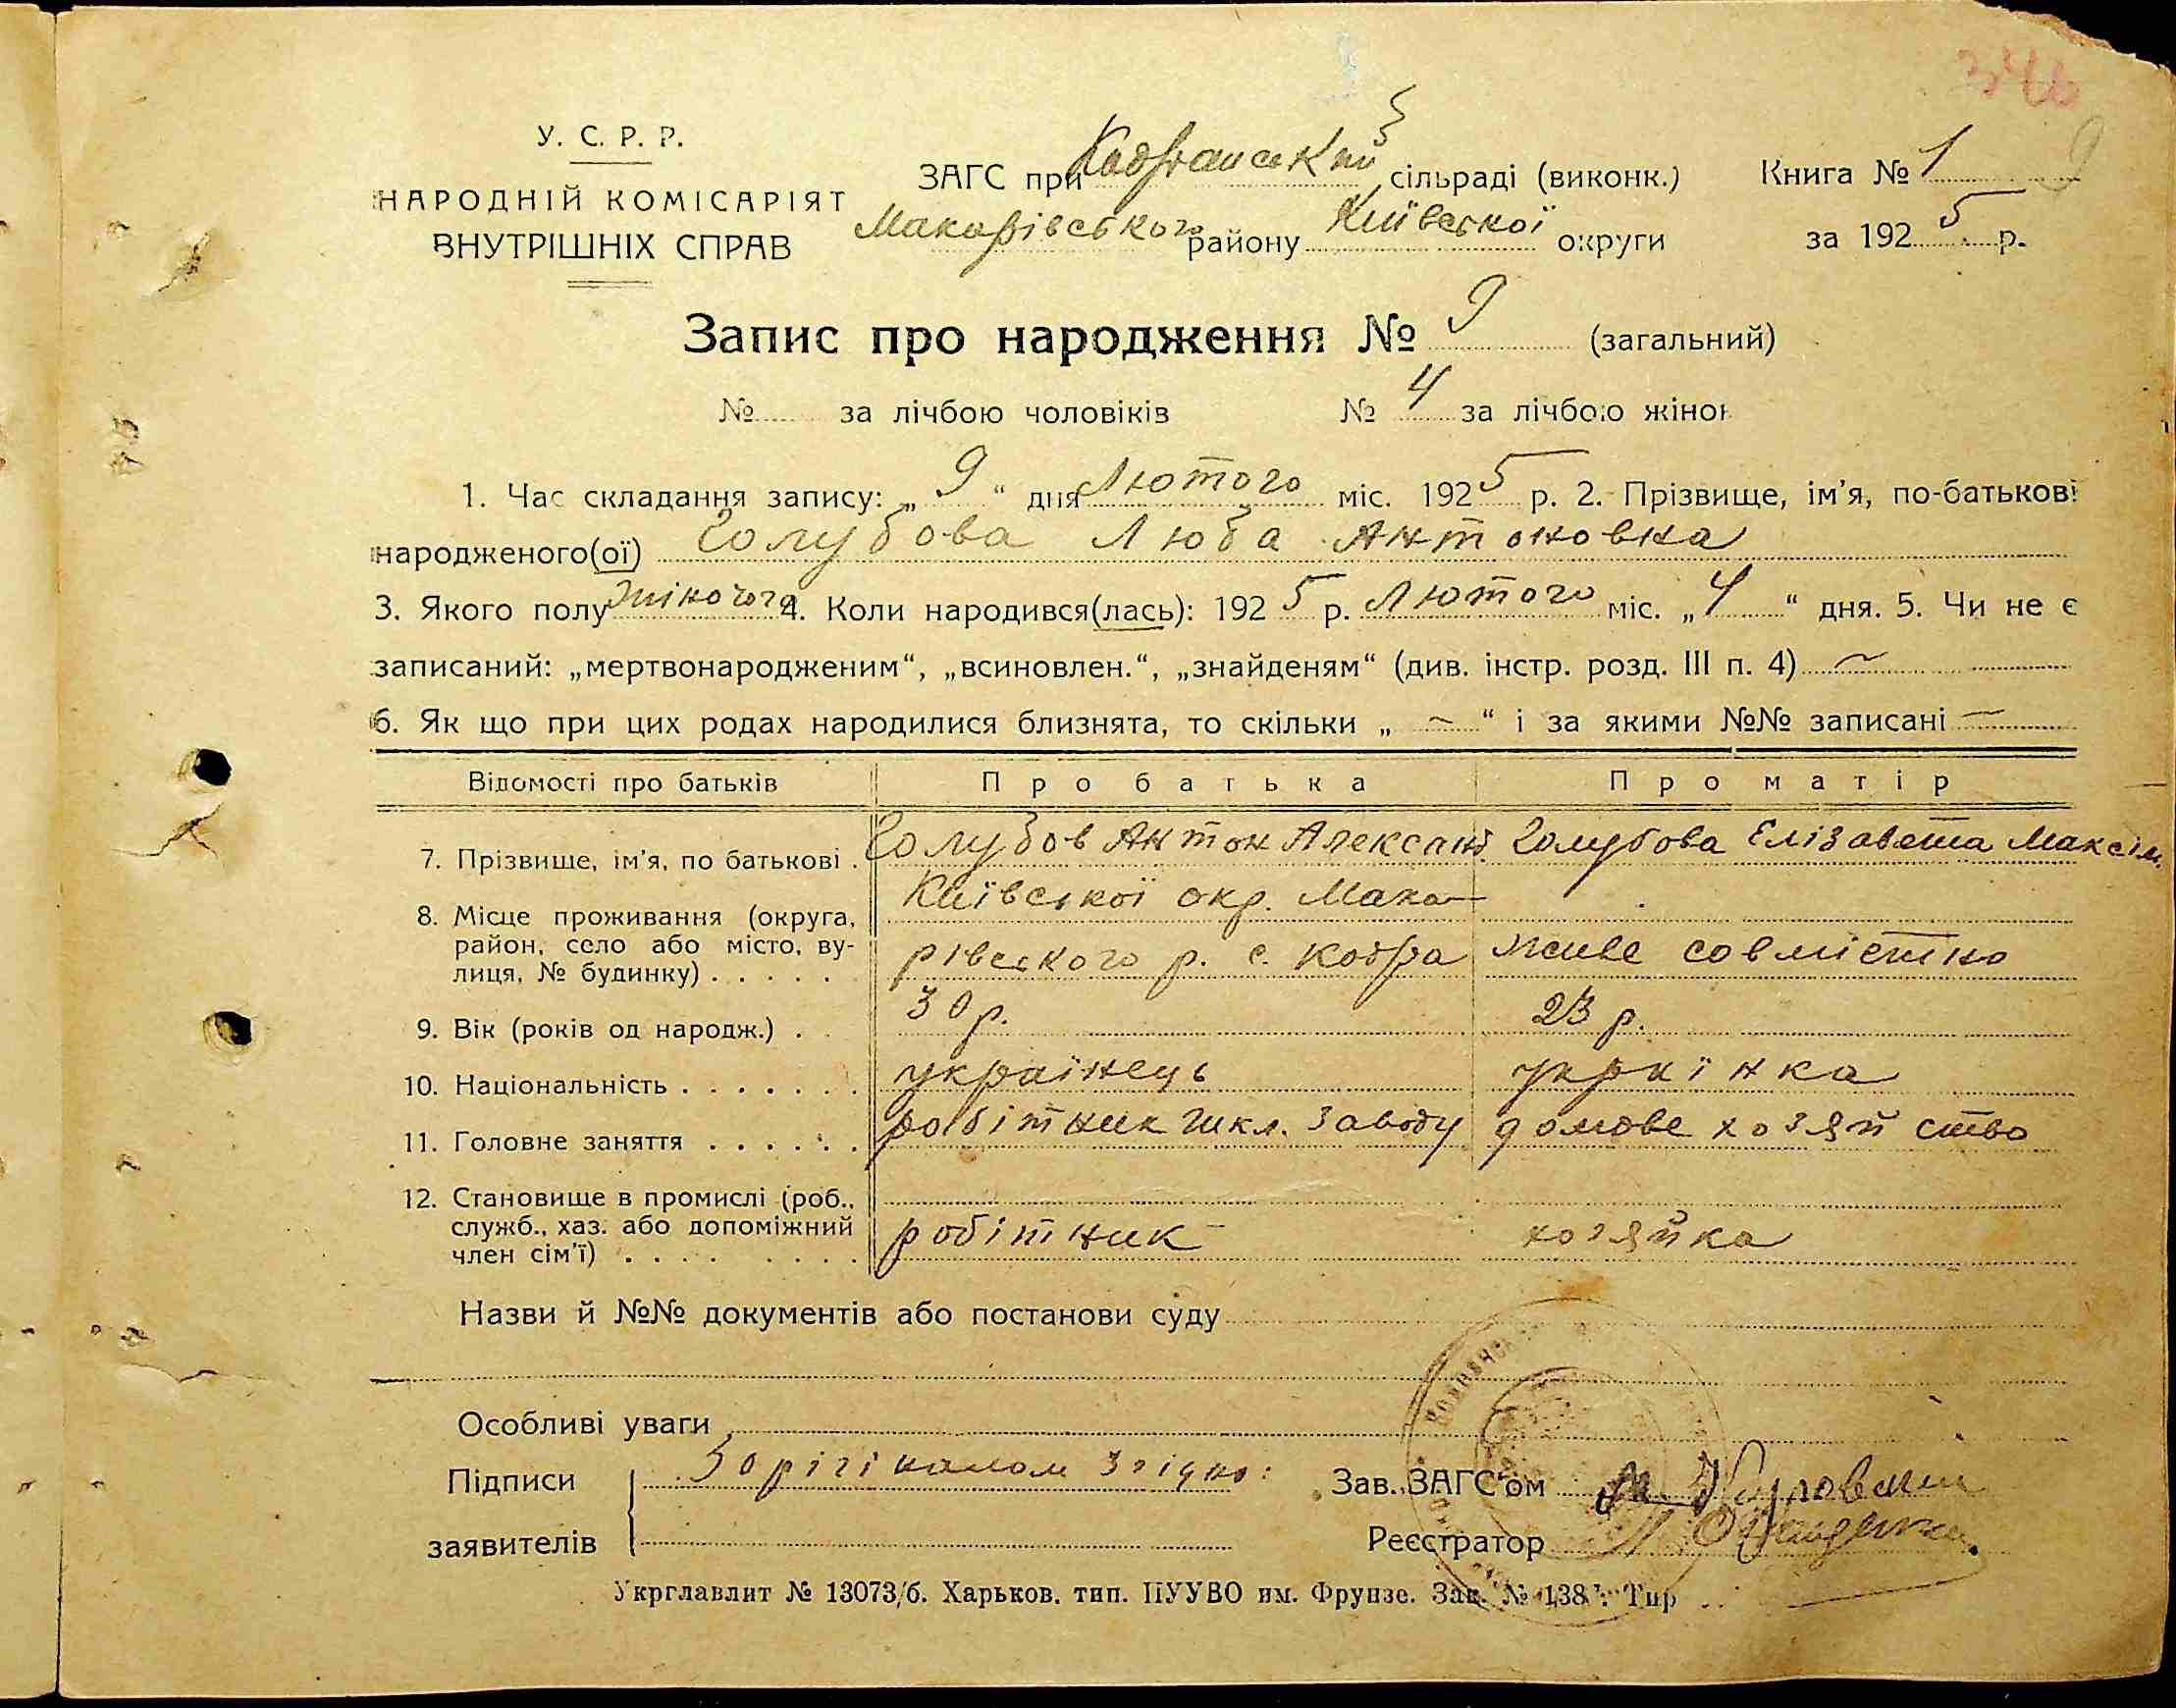 У. С. Р. Р.
НАРОДНІЙ КОМІСАРІЯТ
ВНУТРІШНІХ СПРАВ
ЗАГС при Кодранській сільраді (виконк.)
Макарівського району Київської округи
Книга № 1 9
за 1925 р.
Запис про народження № 9 (загальний)
№ за лічбою чоловіків № 4 за лічбою жінок
1. Час складання запису: „9“ дня Лютого міс. 1925 р. 2. Прізвище, ім'я, по-батькові
народженого(ої) Голубова Люба Антоновна
3. Якого полу жіночого 4. Коли народився(лась): 1925 р. Лютого міс. „4“ дня. 5. Чи не є
записаний: „мертвонародженим“, „всиновлен.“, „знайденям“ (див. інстр. розд. III п. 4) ~
6. Як що при цих родах народилися близнята, то скільки „ ~ “ і за якими №№ записані —
Відомості про батьків Про батька Про матір
7. Прізвище, ім'я, по батькові . Голубов Антон Александ. Голубова Елізавета Максім.
8. Місце проживання (округа, район, село або місто, вулиця, № будинку) . . . . . Київської окр. Мака-
рівского р. с. Кодра живе совмістно
9. Вік (років од народж.) . 30 р. 23 р.
10. Національність . . . . . . . українець укрпїнка
11. Головне заняття . . . . . . робітник шкл. заводу домове хозяйство
12. Становище в промислі (роб., служб., хаз. або допоміжний член сім'ї) . . . . робітник хозяйка
Назви й №№ документів або постанови суду
Особливі уваги
Підписи З орігіналом згідно:
заявителів
Зав. ЗАГС'ом
Реєстратор
Укрглавлит № 13073/б. Харьков. тип. ПУУВО им. Фрунзе. Зак. № 138 Тир